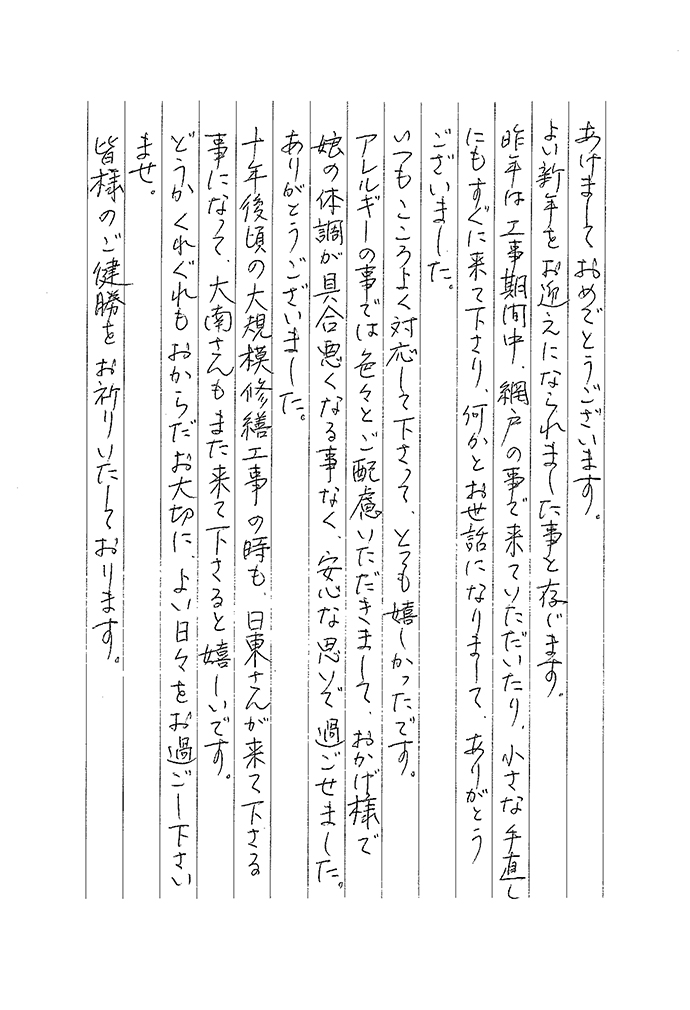 あけましておめでとうございます。
よい新年をお迎えになられました事と存じます。
昨年は工事期間中、網戸の事で来ていただいたり、小さな手直し
にもすぐに来て下さり、何かとお世話になりまして、ありがとう
ございました。
いつもこころよく対応して下さって、とても嬉しかったです。
アレルギーの事では色々とご配慮いただきまして、おかげ様で
娘の体調が具合悪くなる事なく、安心な思いで過ごせました。
ありがとうございました。
十年後頃の大規模修繕工事の時も、日東さんが来て下さる
事になって、大南さんもまた来て下さると嬉しいです。
どうかくれぐれもおからだお大切に、よい日々をお過ごし下さい
ませ。
皆様のご健勝をお祈りいたしております。